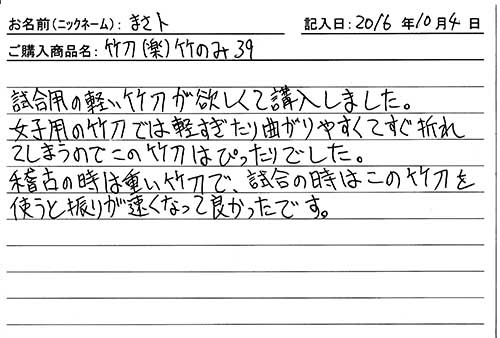 お名前(ニックネーム): まさト 記入日: 2016 年 10 月 4 日
ご購入商品名: 竹刀(楽)竹のみ39
試合用の軽い竹刀が欲しくて講入しました。
女子用の竹刀では軽すぎたり曲がりやすくてすぐ折れ
てしまうのでこの竹刀はぴったりでした。
稽古の時は重い竹刀で、試合の時はこの竹刀を
使うと振りが速くなって良かったです。